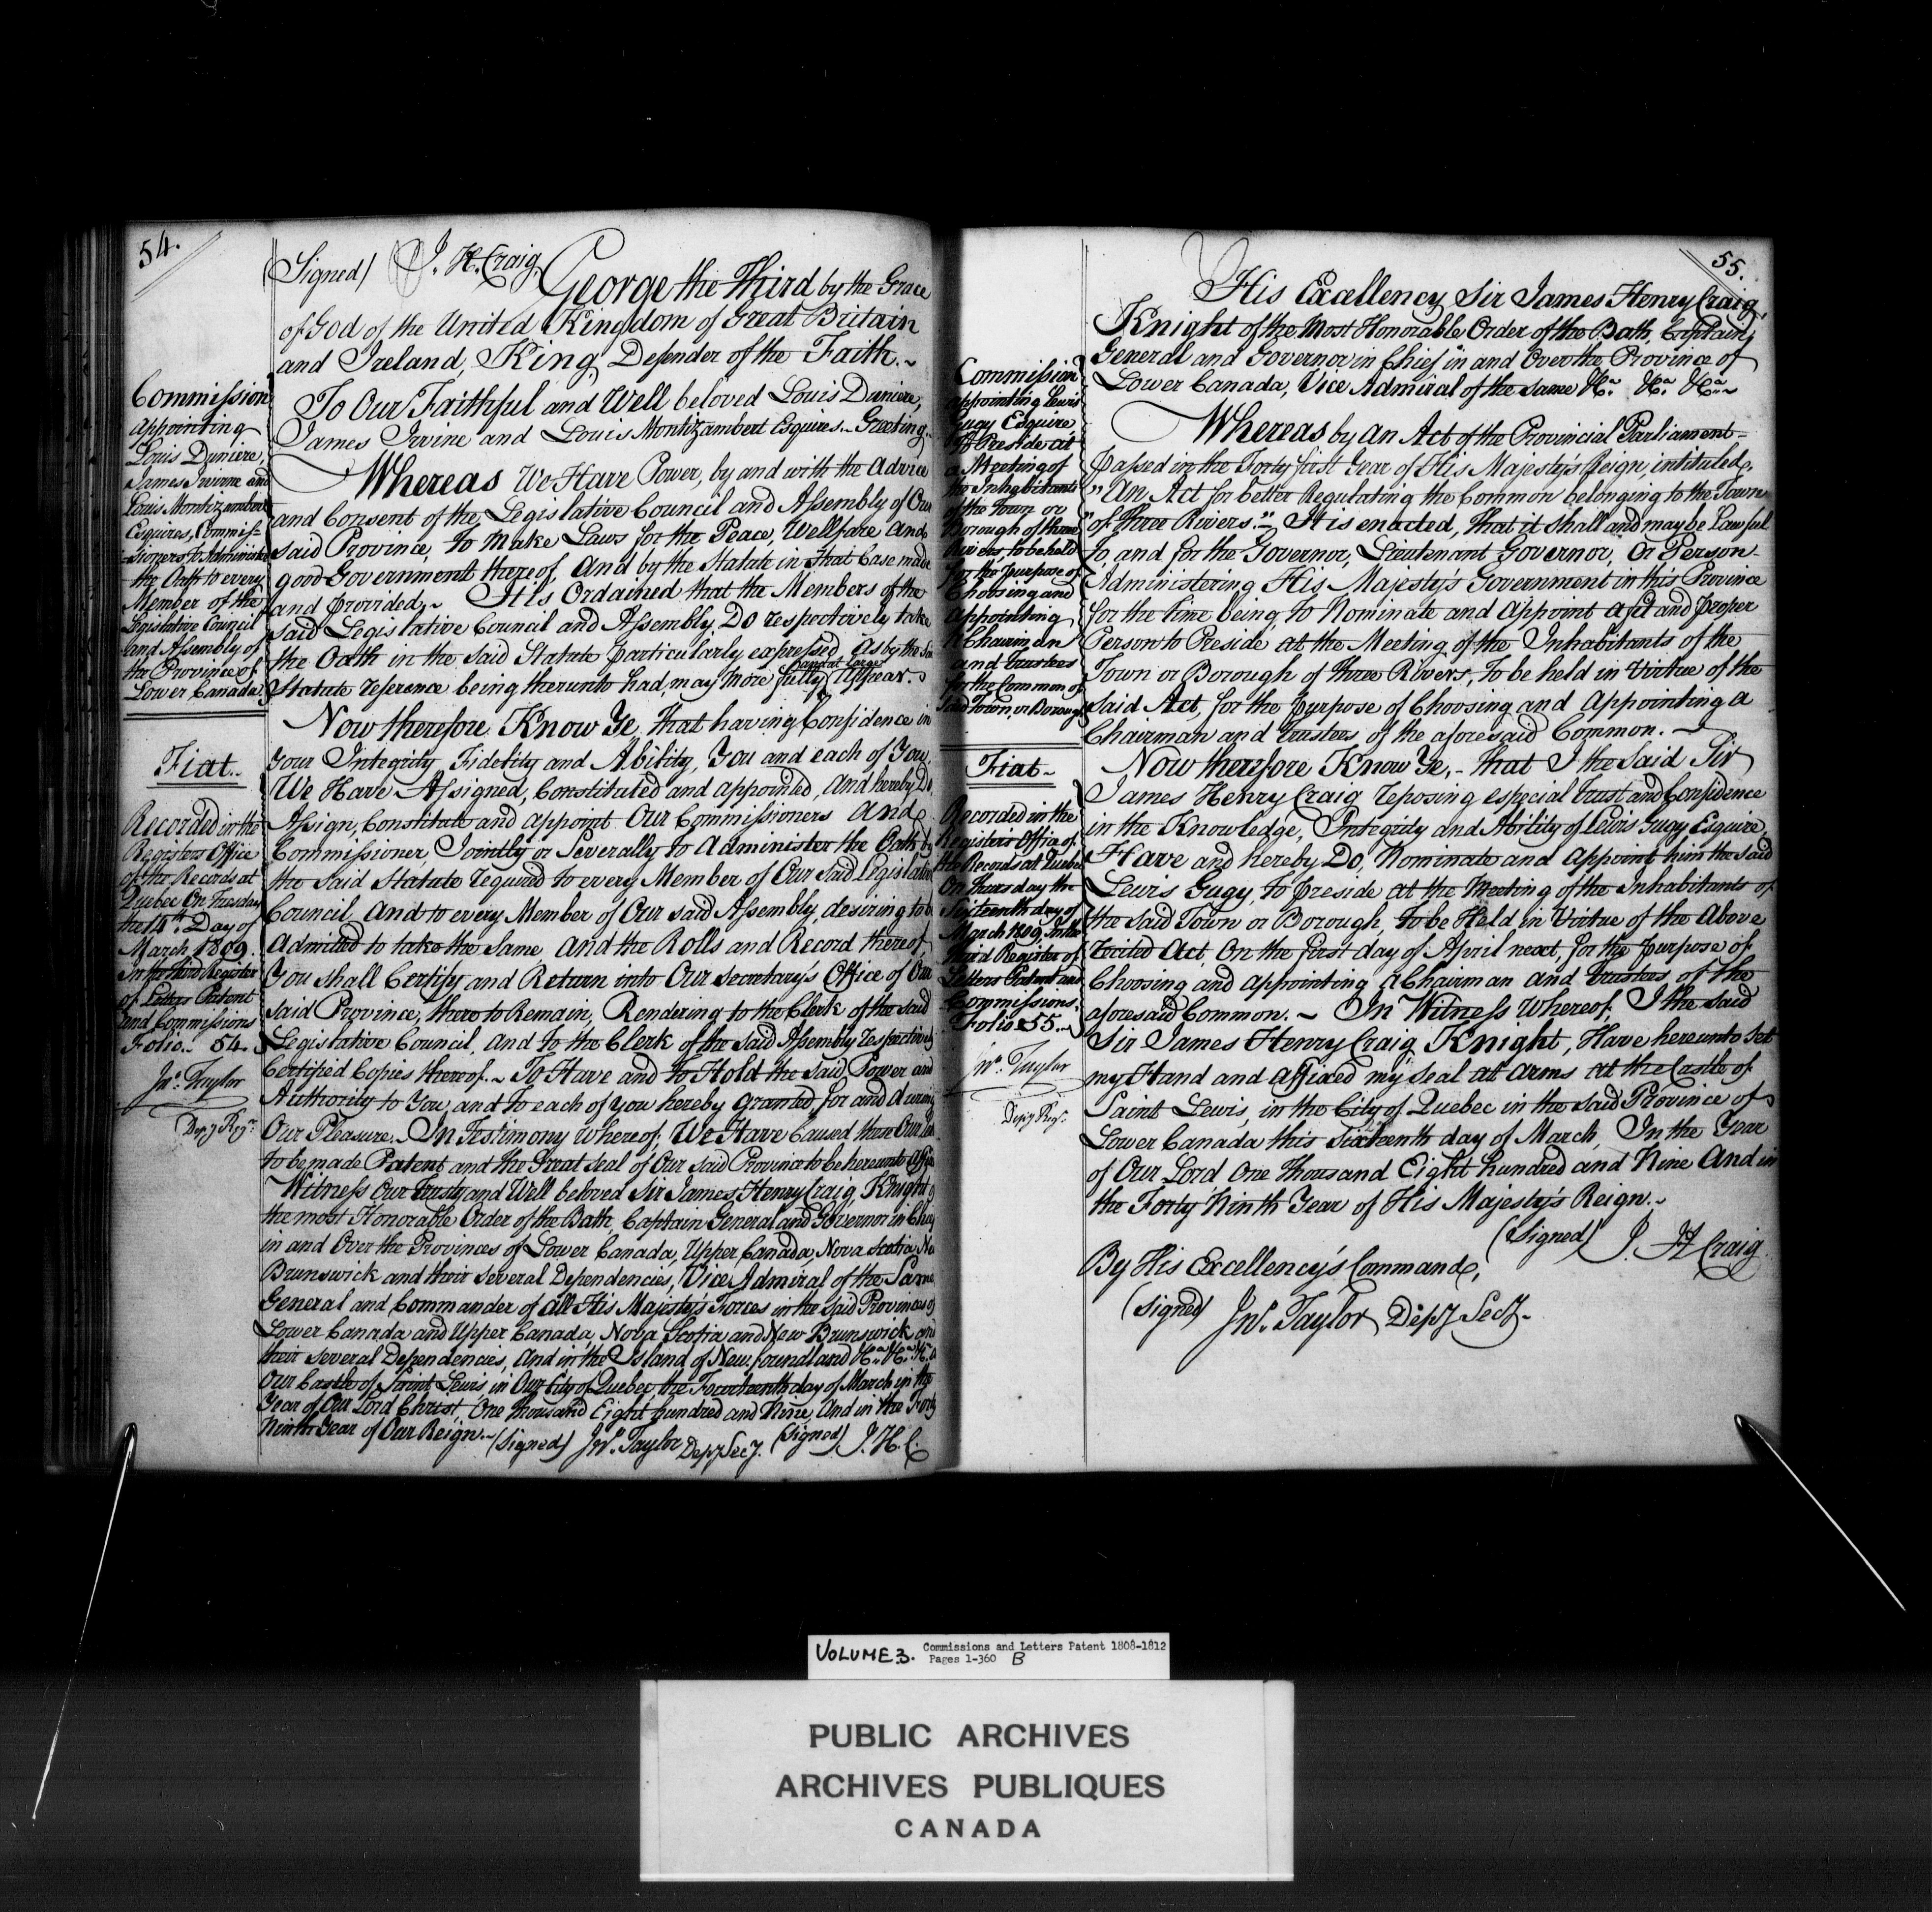 54.
(Signed) J. H. Craig
George the Third by the Grace
of God of the United Kingdom of Great Britain
and Ireland, King Defender of the Faith.~
To Our Faithful and Well beloved Louis Duniere,
James Irvine and Louis Montizambert Esquires.. Greeting..
Whereas We Have Power, by and with the Advice
and Consent of the Legislative Council and Assembly of Our
said Province, to Make Laws for the Peace, Wellfare and
good Government thereof, And by the Statute in that Case made
and provided,~ It is Ordained that the Members of the
said Legislative Council and Assembly Do respectively take
the Oath in the said Statute particularly expressed, As by the
and at large
Statute reference being therunto had, may More fully Appear.~
Now therefore Know Ye, that having Confidence in
Your Integrity Fidelity and Ability, You and each of You,
We Have Assigned, Constituted and appointed, And hereby Do,
Assign, Constitute and appoint Our Commissioners And
Commissioner, Jointly or Severally to Administer the Oath by
the said Statute required to every Member of Our said Legislative
Council, And to every Member of Our said Assembly, desiring to be
Admitted to take the Same, And the Rolls and Record thereof
You shall Certify and Return into Our Secretary's Office of Our
said Province, there to Remain, Rendering to the Clerk of the said
Legislative Council, And to the Clerk of the said Assembly respectively
Certified Copies thereof.~ To Have and to Hold the said Power and
Authority to You, and to each of you hereby Granted, for and during
Our Pleasure.~ In Testimony Whereof, We Have Caused these Our
to be made Patent and the Great Seal of Our said Province to be hereunto
Witness Our Trusty and Well beloved Sir James Henry Craig, Knight of
the most Honorable Order of the Bath, Captain General and Governor in Chief
in and Over the Provinces of Lower Canada, Upper Canada Nova Scotia
Brunswick and their several Dependencies, Vice Admiral of the Same
General and Commander of all His Majesty's Forces in the said Provinces of
Lower Canada and Upper Canada, Nova Scotia and New Brunswick and
their several Dependencies, And in the Island of Newfoundland &ca &ca
Our Castle of Saint Lewis, in Our City of Quebec, the Fourteenth day of March in the
Year of Our Lord Christ, One thousand Eight hundred and Nine, And in the Forty
Ninth Year of Our Reign.~ (Signed) Jno. Taylor Depy Secy. (Signed) J. H. C.
Commission
appointing
Louis Duniere,
James Irvine and
Louis Montizambert
Esquires, Commis=
=sioners to Administer
the Oath to every
Member of the
Legislative Council
and Assembly of
the Province of
Lower Canada.
Fiat..
Recorded in the
Registers Office
of the Records at
Quebec On Tuesday
the 14th Day of
March 1809.
In the third Register
of Letters Patent
and Commissions
Folio.. 54.
Jno. Taylor
Depy Regr.
55.
His Excellency Sir James Henry Craig,
Knight of the Most Honorable Order of the Bath, Captain
General and Governor in Chief in and Over the Province of
Lower Canada, Vice Admiral of the same &ca. &ca. &ca.~
Whereas by an Act of the Provincial Parliament
Passed in the Forty first Year of His Majesty's Reign intituled,
"An Act for better Regulating the Common belonging to the Town
"of three Rivers."~ It is enacted, that it Shall and may be Lawful
to, and for the Governor, Lieutenant Governor, Or Person
Administering His Majesty's Government in this Province
for the time being, to Nominate and Appoint a fit and proper
Person to Preside at the Meeting of the Inhabitants of the
Town or Borough of three Rivers, to be held in Virtue of the
said Act, for the purpose of Choosing and Appointing a
Chairman and trustees of the aforesaid Common.~
Now therefore Know Ye,- that I the Said Sir
James Henry Craig reposing especial trust and Confidence
in the Knowledge, Integrity and Ability of Lewis Gugy Esquire,
Have and hereby Do, Nominate and Appoint him the said
Lewis Gugy, to preside at the Meeting of the Inhabitants of
the said Town or Borough, to be Held in Virtue of the Above
recited Act, On the first day of April next, for the purpose of
Choosing and Appointing A Chairman and trustees of the
aforesaid Common.~ In Witness Whereof, I the said
Sir James Henry Craig, Knight, Have hereunto Set
my Hand and Affixed my Seal at Arms At the Castle of
Saint Lewis, in the City of Quebec in the said Province of
Lower Canada this Sixteenth day of March, In the Year
of Our Lord One thousand Eight hundred and Nine And in
the Forty Ninth Year of His Majesty's Reign.~
(Signed) J. H Craig.
By His Excellency's Command,
(Signed) Jno. Taylor Depy Secy.
Commission
appointing Lewis
Gugy Esquire
to Preside at
a Meeting of
the Inhabitants
of the Town or
Borough of three
Rivers, to be held
for the purpose of
Choosing and
Appointing
A Chairman
and trustees
for the Common of
said Town, or Borough
Fiat~
Recorded in the
Registers Office of
the Records at Quebec
On Thursday the
Sixteenth day of
March 1809. In the
third Register of
Letters Patent and
Commissions.
Folio 55.~
Jno. Taylor
Depy Regr.
VOLUME 3. Commissions and Letters Patent 1808-1812
Pages 1-360 B
PUBLIC ARCHIVES
ARCHIVES PUBLIQUES
CANADA